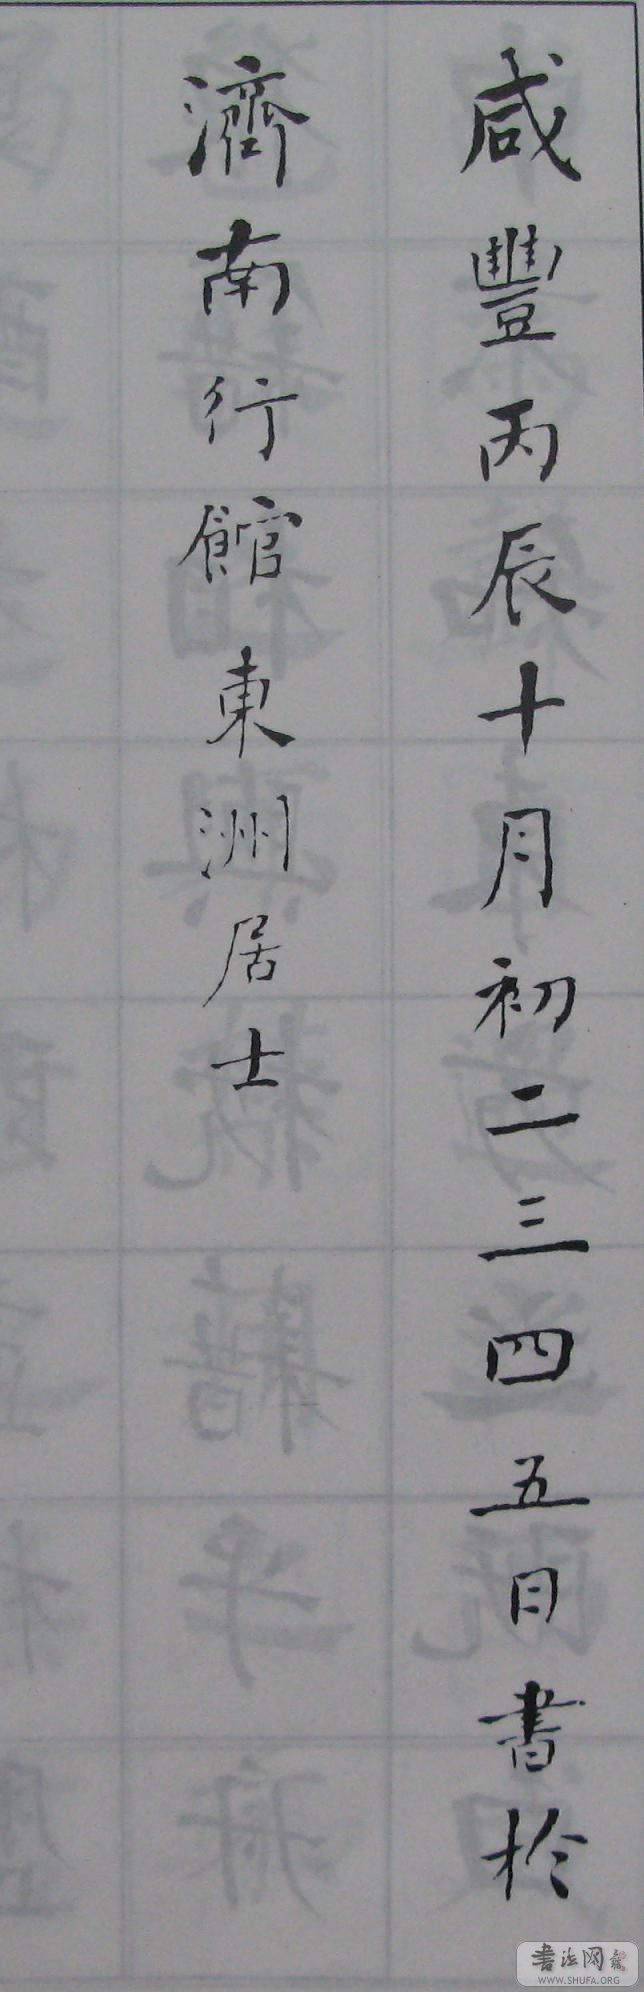 咸豐丙辰十月初二三四五日書於
濟南行館東洲居士
書法网
WWW.SHUFA.ORG